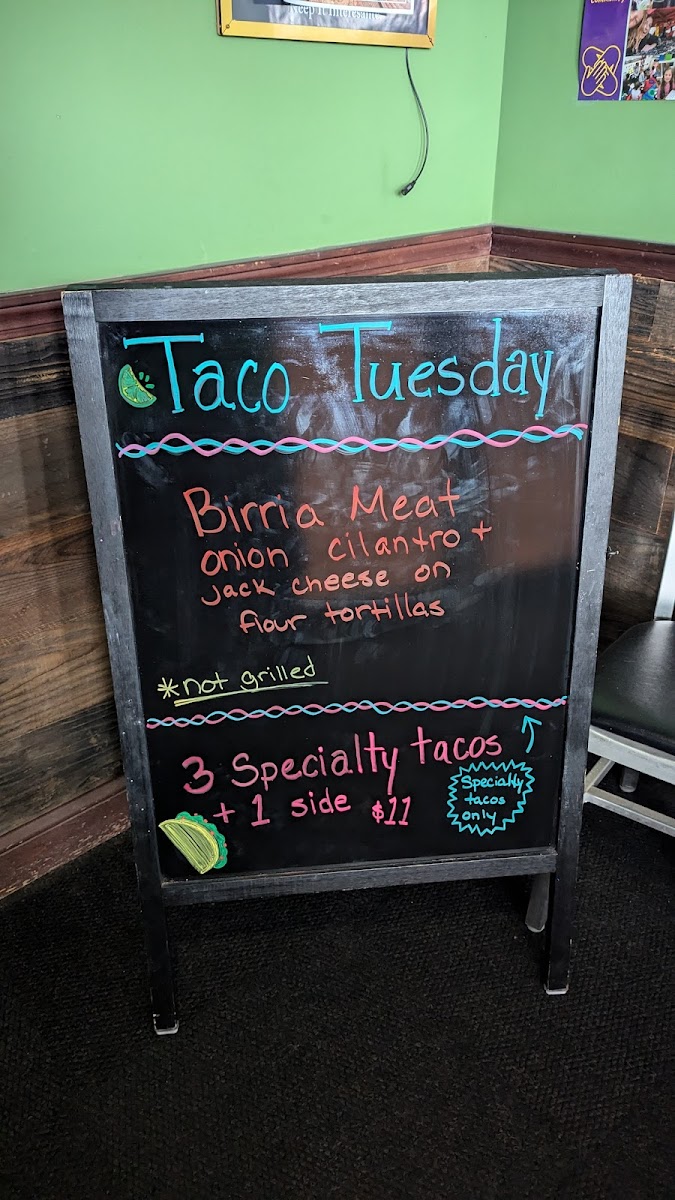 Keep It Interesting
Community
Taco Tuesday
Birria Meat
onion cilantro +
jack cheese on
flour tortillas
*not grilled
3 Specialty tacos
+ 1 side $11
Specialty
tacos
only